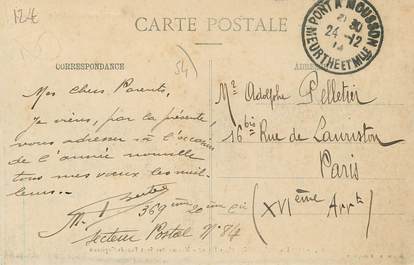 12€
CARTE POSTALE
PONT A MOUSSON
24-12
14
MEURTHE ET MLLE
CORRESPONDANCE
54
Mes chers Parents,
Je viens, par la présente,
vous adresser à l'occasion
de l'année nouvelle
tous mes vœux les meil-
leurs.
369ème 20ème Cie
Secteur Postal N° 84
Mr Adolphe Pelletier
16bis Rue de Lauriston
Paris
(XVIème Arrt)